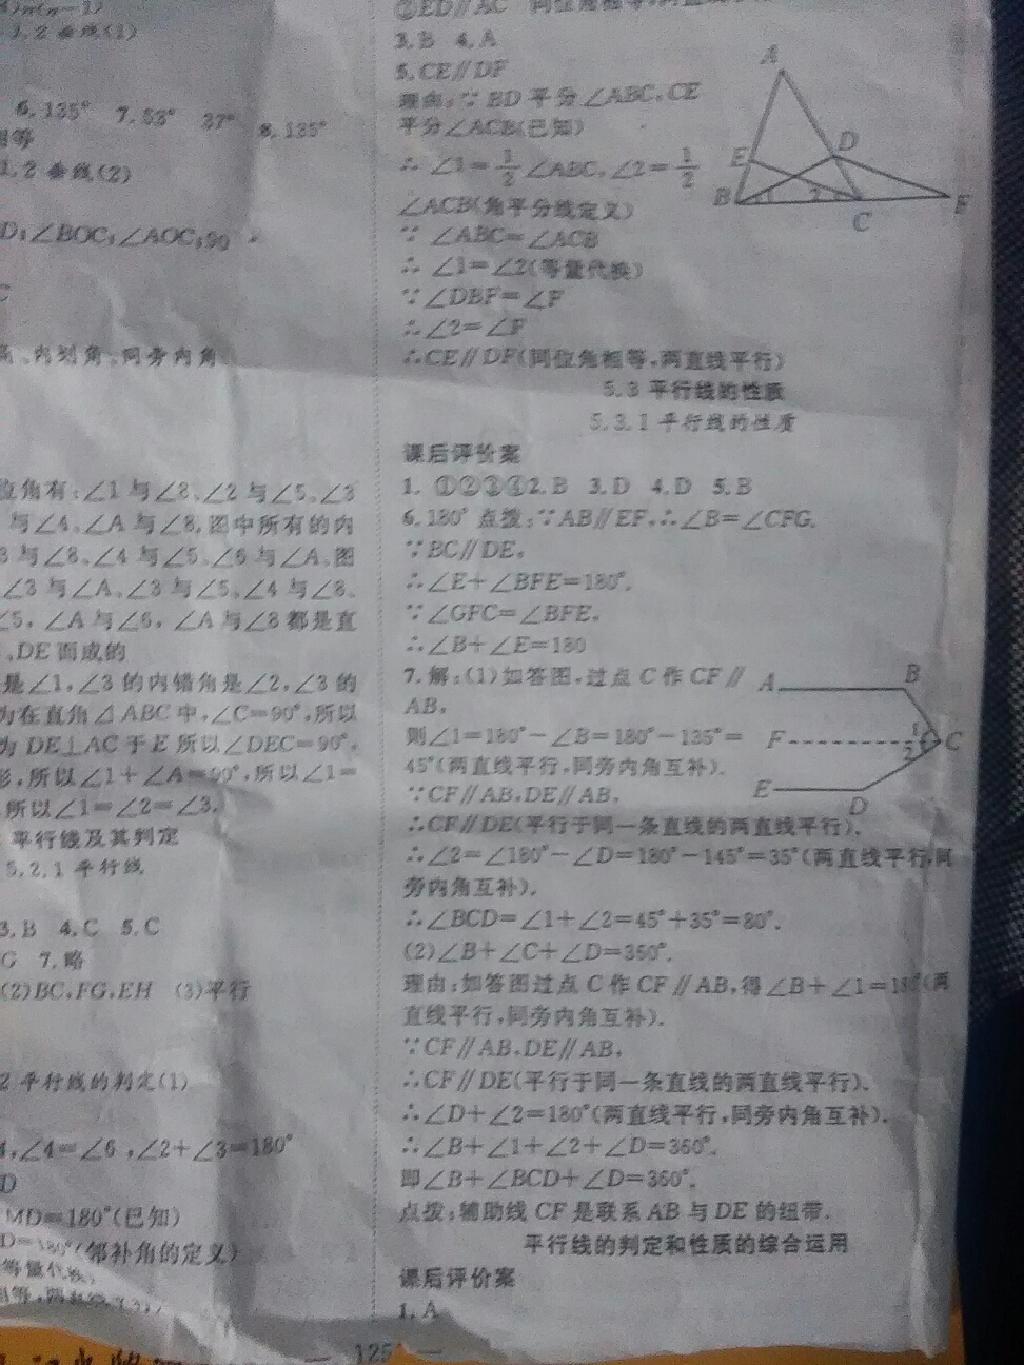 1.2 垂线(1)
6.135° 7.53° 37° 8.135°
相等
1.2 垂线(2)
D;∠BOC;∠AOC;90
C
内划角、同旁内角
位角有:∠1与∠8、∠2与∠5、∠3
与∠4、∠A与∠8.图中所有的内
3与∠8、∠4与∠5、∠6与∠A.图
∠3与∠A、∠3与∠5、∠4与∠8、
∠5,∠A与∠6,∠A与∠8都是直
、DE面成的
是∠1,∠3的内错角是∠2,∠3的
为在直角△ABC中,∠C=90°,所以
为DE⊥AC于E所以∠DEC=90°,
形,所以∠1+∠A=90°,所以∠1=
所以∠1=∠2=∠3.
平行线及其判定
5.2.1 平行线
3.B 4.C 5.C
G 7.略
(2)BC,FG,EH (3)平行
2 平行线的判定(1)
4,∠4=∠6,∠2+∠3=180°
D
MD=180°(已知)
D=180°(邻补角的定义)
等量代换)
②ED∥AC
3.B 4.A
5.CE∥DF
理由:∵BD平分∠ABC,CE
平分∠ACB(已知)
∴∠1=1/2∠ABC,∠2=1/2
∠ACB(角平分线定义)
∵∠ABC=∠ACB
∴∠1=∠2(等量代换)
∵∠DBF=∠F
∴∠2=∠F
∴CE∥DF(同位角相等,两直线平行)
A
E
D
B
1
2
C
F
5.3 平行线的性质
5.3.1 平行线的性质
课后评价案
1. ①②③④2.B 3.D 4.D 5.B
6.180° 点拨:∵AB∥EF,∴∠B=∠CFG.
∵BC∥DE,
∴∠E+∠BFE=180°.
∵∠GFC=∠BFE,
∴∠B+∠E=180
7.解:(1)如答图,过点C作CF∥
AB,
则∠1=180°-∠B=180°-135°=
45°(两直线平行,同旁内角互补).
∵CF∥AB,DE∥AB,
A
B
F
1
2
C
E
D
∴CF∥DE(平行于同一条直线的两直线平行).
∴∠2=∠180°-∠D=180°-145°=35°(两直线平行,同
旁内角互补).
∴∠BCD=∠1+∠2=45°+35°=80°.
(2)∠B+∠C+∠D=360°.
理由:如答图过点C作CF∥AB,得∠B+∠1=180°(两
直线平行,同旁内角互补).
∵CF∥AB,DE∥AB,
∴CF∥DE(平行于同一条直线的两直线平行).
∴∠D+∠2=180°(两直线平行,同旁内角互补).
∴∠B+∠1+∠2+∠D=360°.
即∠B+∠BCD+∠D=360°.
点拨:辅助线CF是联系AB与DE的纽带.
平行线的判定和性质的综合运用
课后评价案
1.A
— 125 —